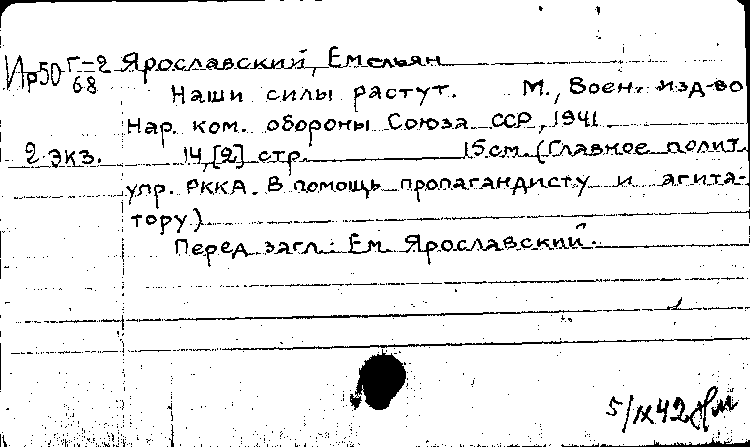 Ир50 Г-2/68 Ярославский, Емельян
Наши силы растут. М., Воен. изд-во
Нар. ком. обороны Союза ССР, 1941.
2 экз. 14,[2] стр. 15см. (Главное полит.
упр. РККА. В помощь пропагандисту и агита-
тору.)
Перед загл.: Ем. Ярославский.
5/IX 42